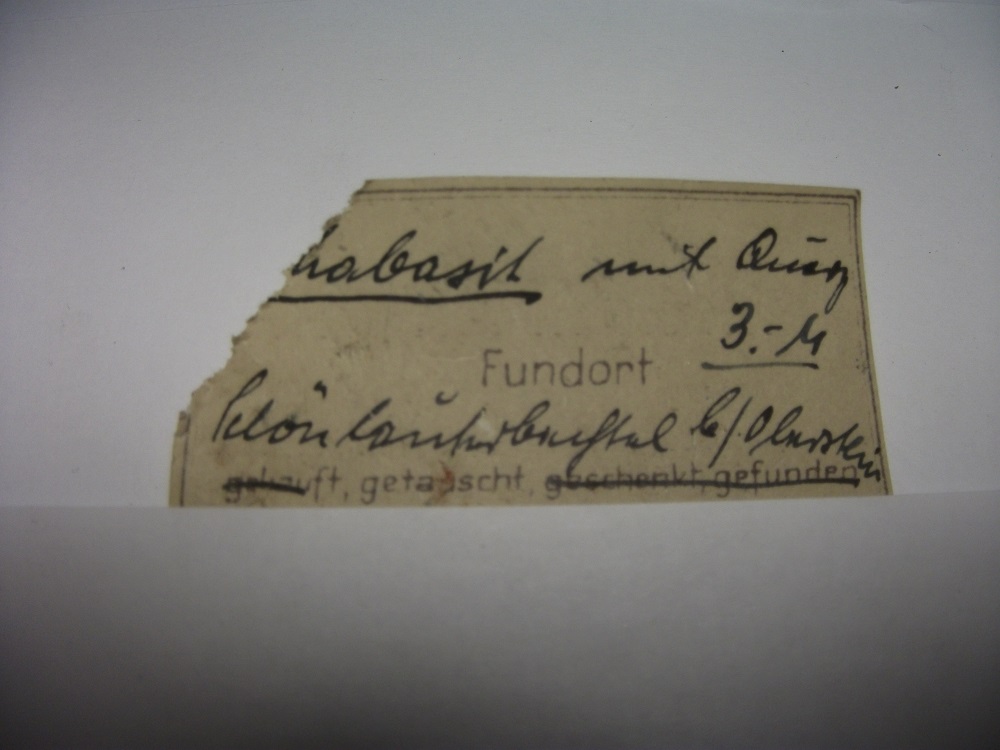 habasit mit Quarz
3.- M
Fundort
Schönlauterbachtal b/Oberstein
gekauft, getauscht, geschenkt, gefunden